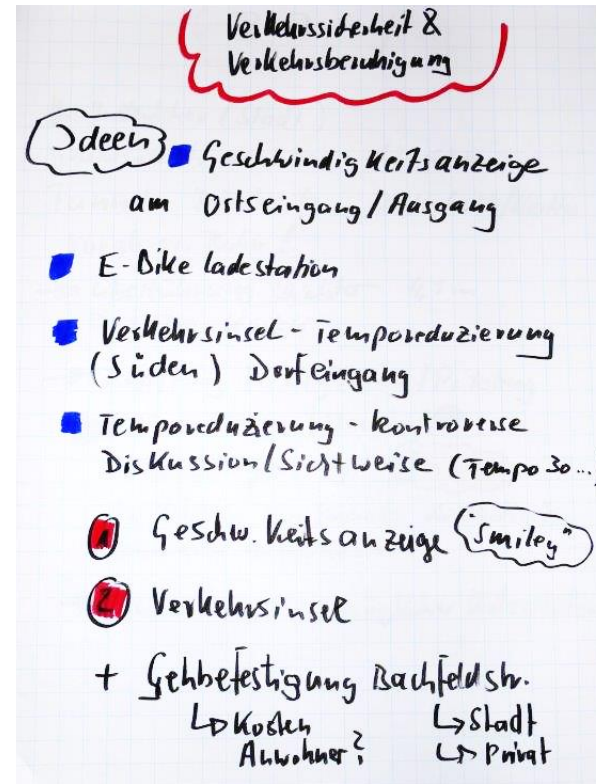 Verkehrssicherheit &
Verkehrsberuhigung
Ideen
Geschwindigkeitsanzeige
am Ortseingang/Ausgang
E-Bike ladestation
Verkehrsinsel - Temporeduzierung
(Süden) Dorfeingang
Temporeduzierung - kontroverse
Diskussion/Sichtweise (Tempo 30...
1 Geschw.keitsanzeige "Smiley"
2 Verkehrsinsel
+ Gehbefestigung Bachfeldstr.
↳ Kosten ↳ Stadt
Anwohner? ↳ Privat